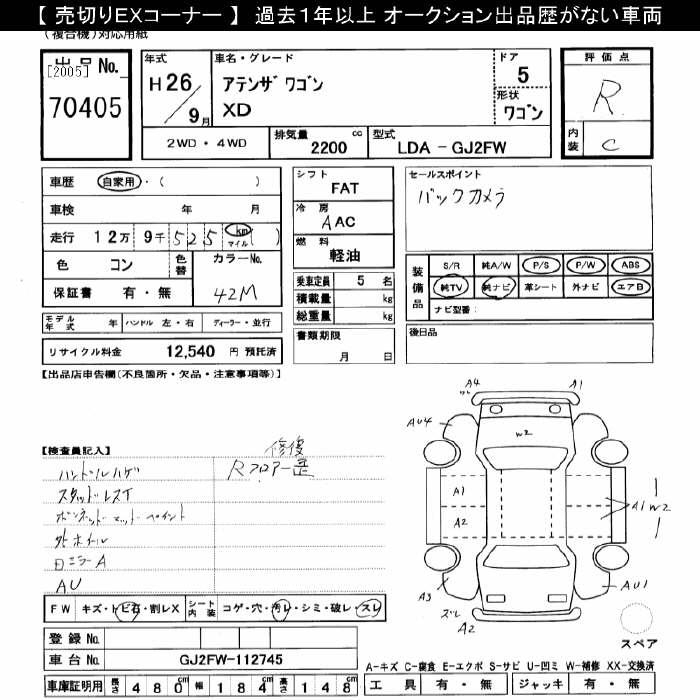 【 売切りEXコーナー 】 過去１年以上 オークション出品歴がない車両
(複合機)対応用紙
出品 No.
[2005]
70405
年式
H26/9月
車名・グレード
アテンザ ワゴン
XD
ドア
5
形状
ワゴン
評価点
R
内装
C
2WD ・ 4WD
排気量 2200 cc
型式 LDA - GJ2FW
車歴 自家用 ・ ( )
車検 年 月
走行 12万 9千 525 km マイル ( )
色 コン
色替
カラーNo. 42M
保証書 有 ・ 無
シフト FAT
冷房 AAC
燃料 軽油
乗車定員 5 名
積載量 kg
総重量 kg
書類期限
月 日
セールスポイント
バックカメラ
装備品
S/R 純A/W P/S P/W ABS
純TV 純ナビ 革シート 外ナビ エアB
ナビ型番:
後日品
モデル年式 年 ハンドル 左・右 ディーラー・並行
リサイクル料金 12,540 円 預託済
【出品店申告欄(不良箇所・欠品・注意事項等)】
【検査員記入】
修復
Rフロアー歪
ハンドルハゲ
ボンネットマットペイント
外ホイール
AU
FW キズ・トビ石・割レX シート内装 コゲ・穴・汚レ・シミ・破レ・スレ
登録 No.
車台 No. GJ2FW-112745
車庫証明用 長さ 480cm 幅 184cm 高さ 148cm
A4
A1
AU4
W2
A1
A2
A1 W2
A3
ズレ
A2
AU1
スペア
A-キズ C-腐食 E-エクボ S-サビ U-凹ミ W-補修 XX-交換済
工具 有 ・ 無 ジャッキ 有 ・ 無